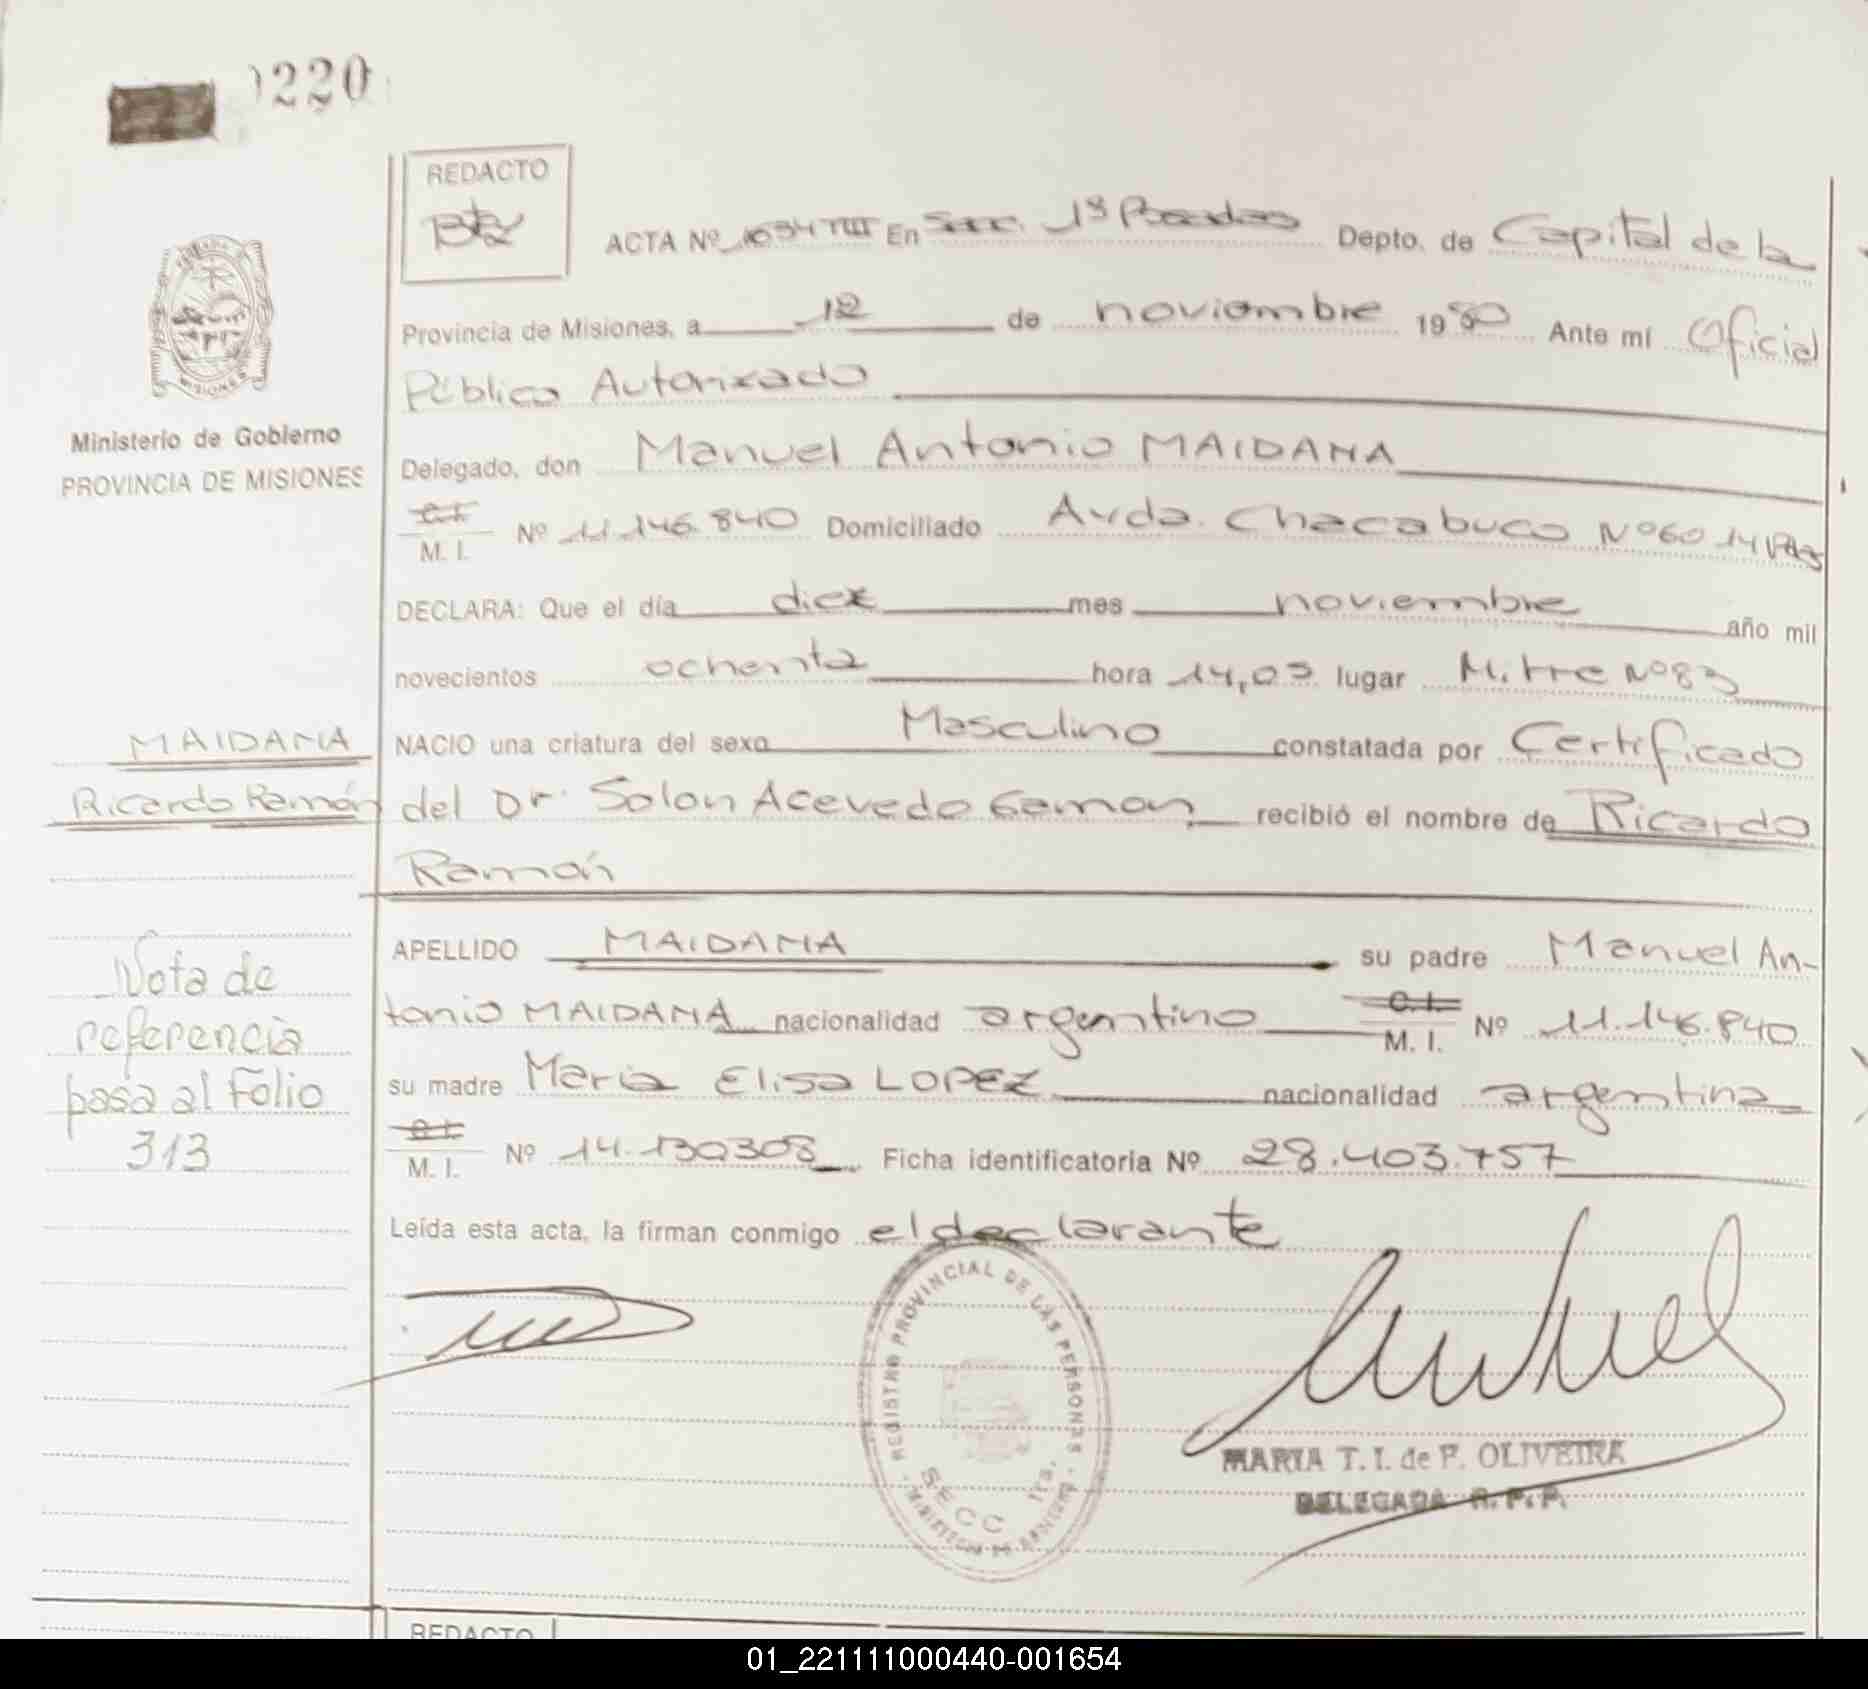 220
REDACTO
ACTA Nº 1034 TIII En Secc. 1ª Posadas Depto. de Capital de la
Provincia de Misiones, a 12 de noviembre 1980 Ante mí Oficial
Público Autorizado
Ministerio de Gobierno
PROVINCIA DE MISIONES
Delegado, don Manuel Antonio MAIDANA
C.I. M. I. Nº 11.146.840 Domiciliado Avda. Chacabuco Nº 6014 Pdas
DECLARA: Que el día diez mes noviembre año mil
novecientos ochenta hora 14,03 lugar Mitre Nº 83
MAIDANA
Ricardo Ramón
NACIO una criatura del sexo Masculino constatada por Certificado
del Dr. Solon Acevedo Gamon recibió el nombre de Ricardo
Ramón
APELLIDO MAIDANA su padre Manuel An-
tonio MAIDANA nacionalidad argentino C.I. M. I. Nº 11.146.840
su madre Maria Elisa LOPEZ nacionalidad argentina
C.I. M. I. Nº 14.130308 Ficha identificatoria Nº 28.403.757
Nota de
referencia
pasa al Folio
313
Leída esta acta, la firman conmigo el declarante
REGISTRO PROVINCIAL DE LAS PERSONAS
SECC 1ra.
MARIA T. I. de F. OLIVEIRA
DELEGADA R. P. P.
REDACTO
01_221111000440-001654